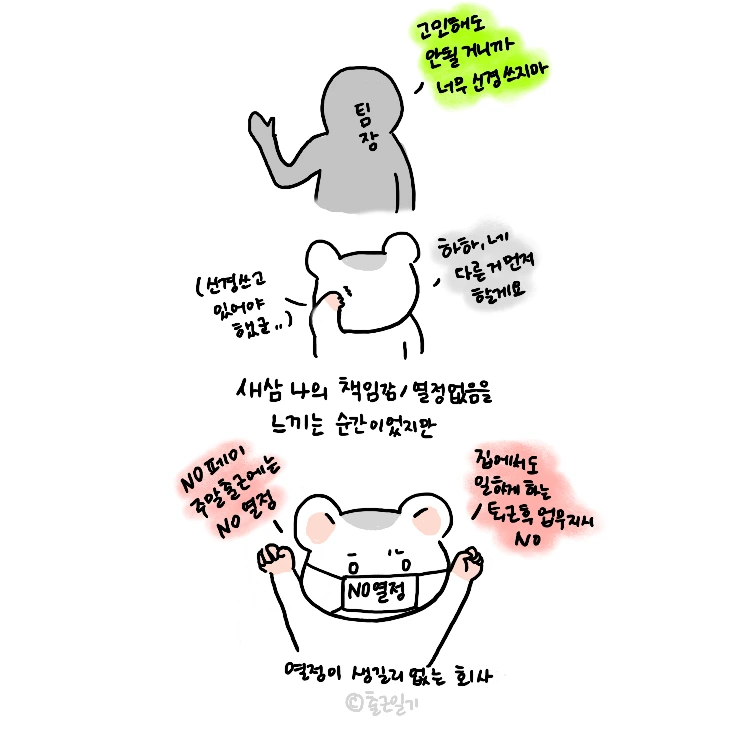 고민해도
안될 거니까
너무 신경 쓰지마
팀
장
하하, 네
다른 거 먼저
할게요
(신경쓰고
있어야
했군..)
새삼 나의 책임감/열정없음을
느끼는 순간이었지만
NO 페이
주말출근에는
NO 열정
집에서도
일하게 하는
퇴근후 업무지시
NO
NO열정
열정이 생길리 없는 회사
©출근일기